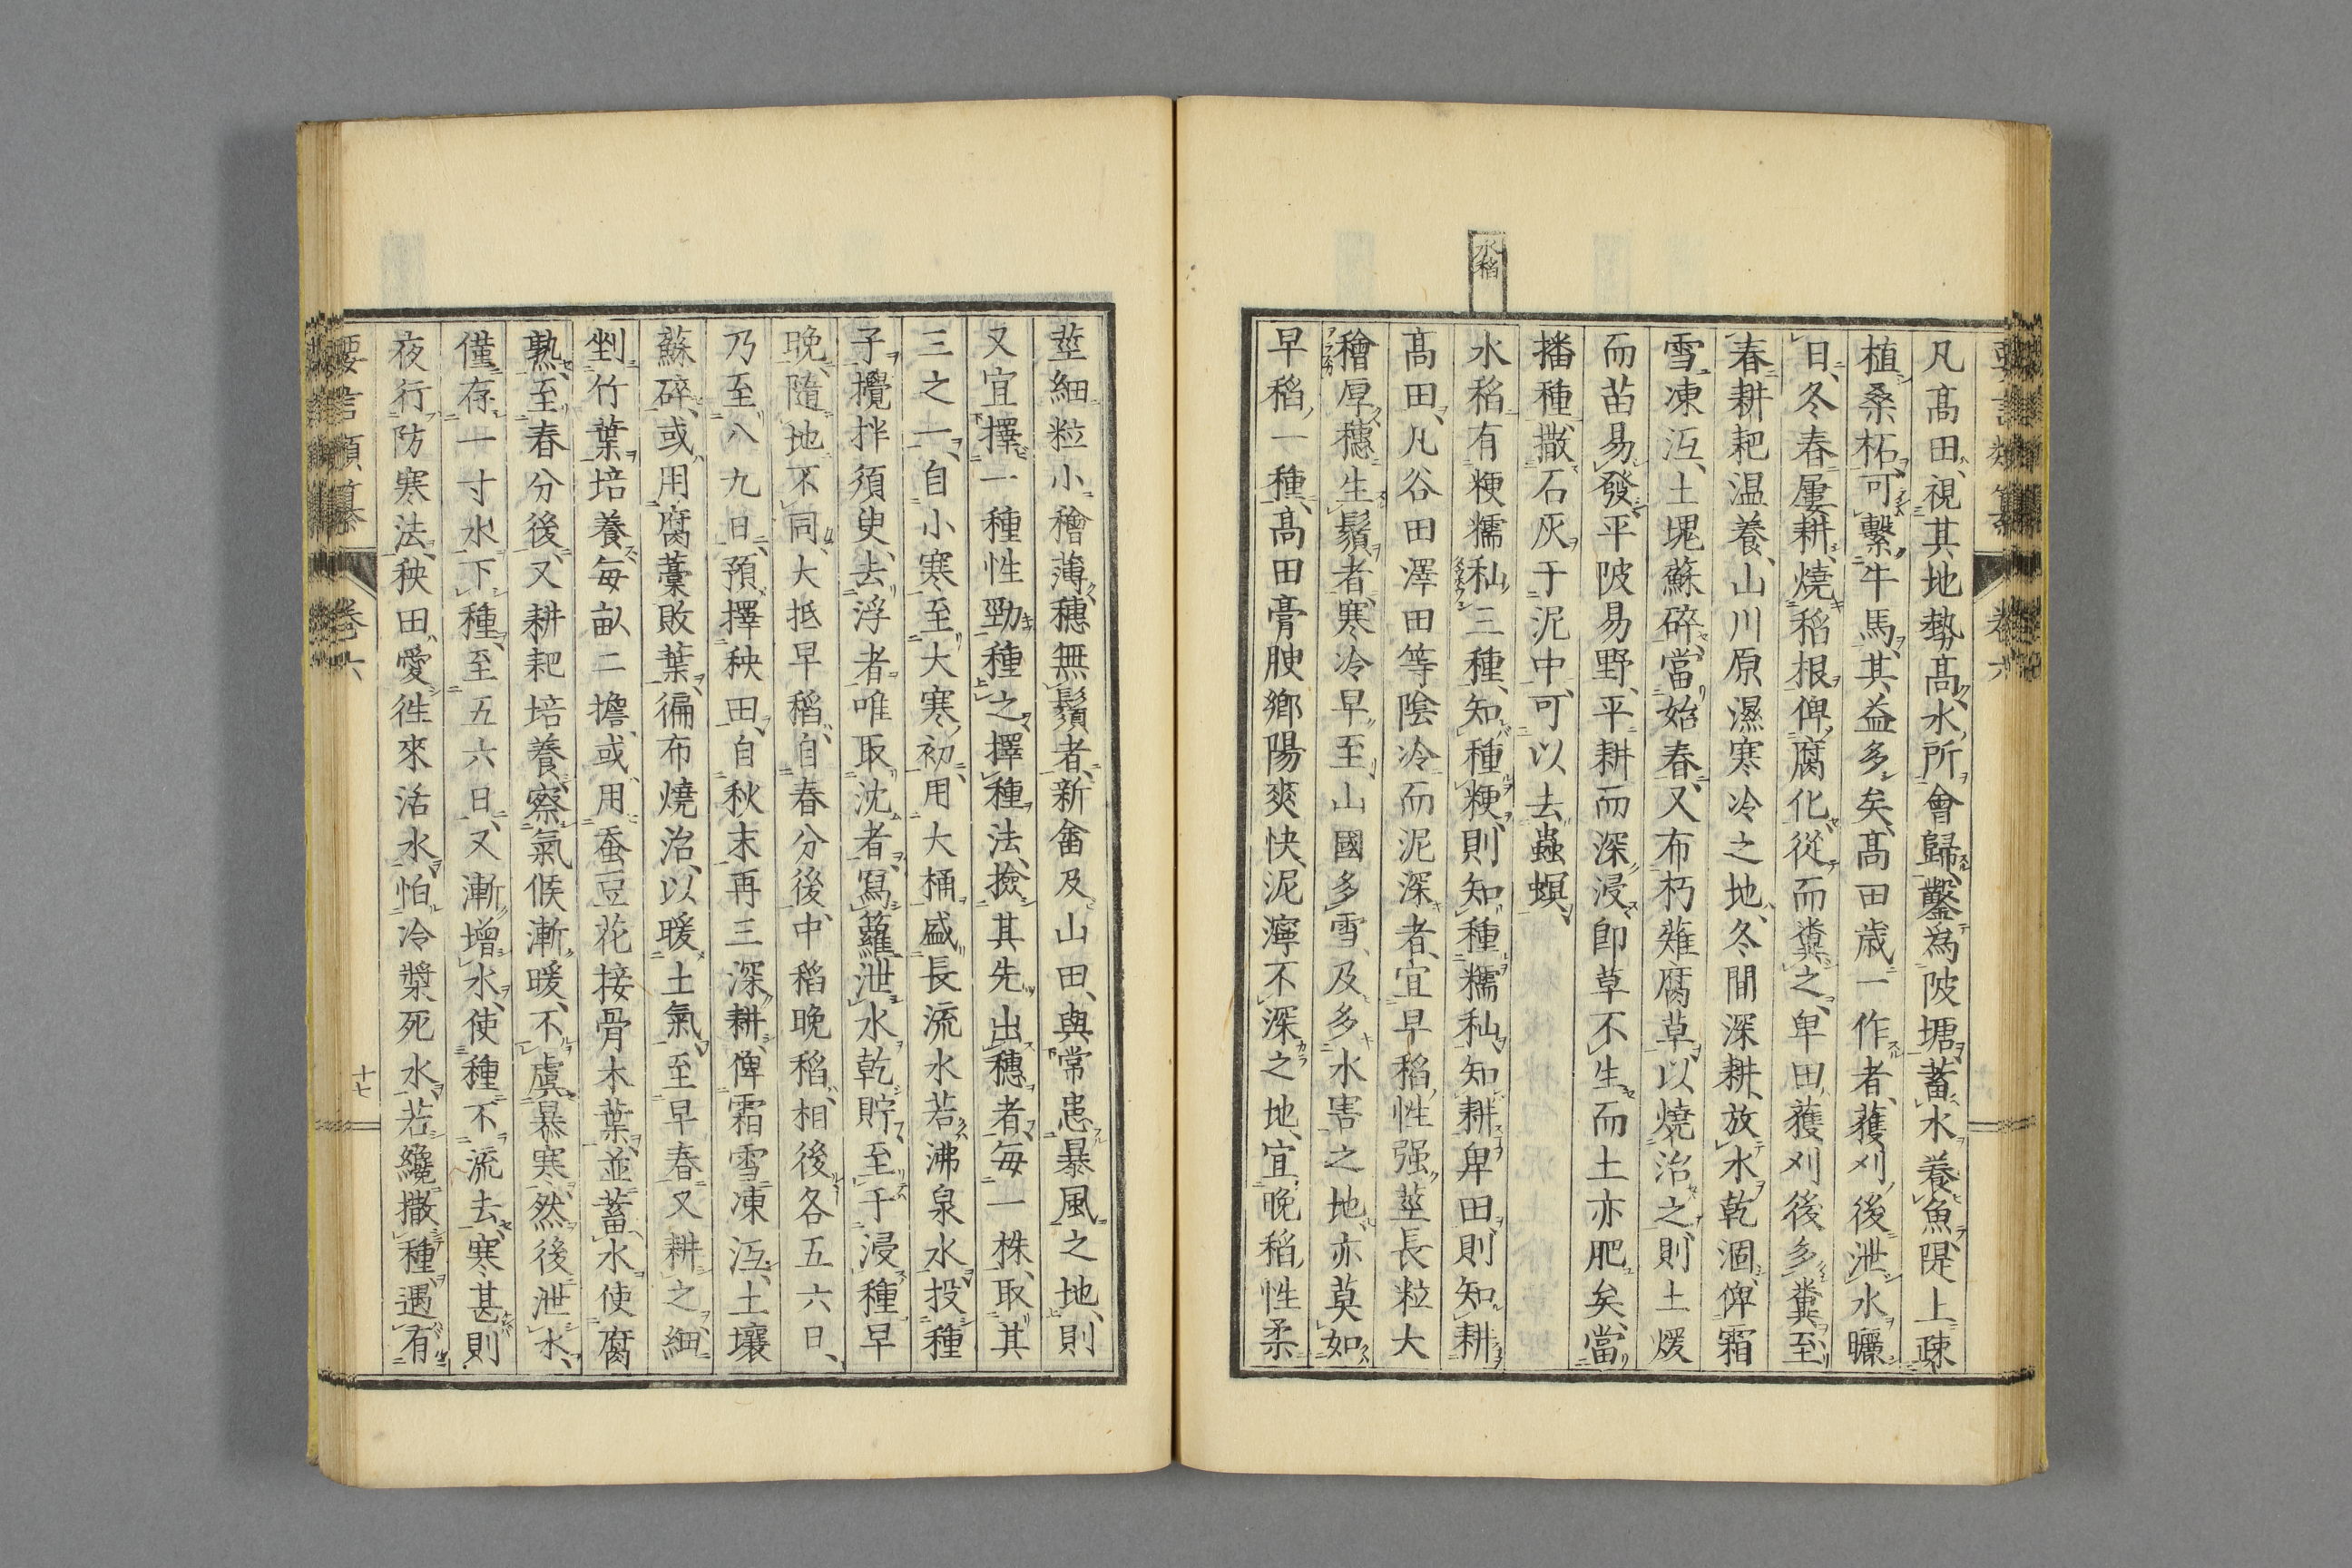 水稻
凡髙田、視其地勢髙、水所會歸、鑿爲陂塘、蓄水養魚、隄上疎
植桑柘、可繫牛馬、其益多矣、髙田歳一作者、穫刈後泄水曬
日、冬春屢耕、燒稻根俾腐化、從而糞之、卑田、穫刈後多糞、至
春耕耙温養、山川原濕寒冷之地、冬間深耕、放水乾涸、俾霜
雪凍沍、土塊蘇碎、當始春、又布朽薙腐草、以燒治之、則土煖
而苗易發、平陂易野、平耕而深浸、即草不生、而土亦肥矣、當
播種、撒石灰于泥中、可以去蟲螟、
水稻有粳糯秈三種、知種粳、則知種糯秈、知耕卑田、則知耕
髙田、凡谷田澤田等陰冷而泥深者、宜早稻、性强莖長粒大
穭厚穗生鬚者、寒冷早至、山國多雪、及多水害之地、亦莫如
早稻一種、髙田膏腴鄉陽爽快、泥濘不深之地、宜晩稻、性柔
莖細粒小穭薄穗無鬚者、新畬及山田、與常患暴風之地、則
又宜擇一種性勁種之、擇種法、撿其先出穗者、毎一株、取其
三之一、自小寒至大寒、初用大桶盛長流水若沸泉水、投種
子攪拌須臾、去浮者、唯取沈者、寫籮泄水乾貯、至于浸種早
晩、隨地不同、大抵早稻、自春分後、中稻晩稻、相後各五六日、
乃至八九日、預擇秧田、自秋末再三深耕、俾霜雪凍沍、土壤
蘇碎、或用腐藁敗葉、徧布燒治、以暖土氣、至早春又耕之、細
剉竹葉培養、毎畝二擔、或用蚕豆花接骨木葉、並蓄水使腐
熟、至春分後、又耕耙培養、察氣候漸暖、不虞暴寒、然後泄水、
僅存一寸水、下種、至五六日、又漸增水、使種不流去、寒甚則
夜行防寒法、秧田、愛徃來活水、怕冷漿死水、若纔撒種、遇有
卷六
十七